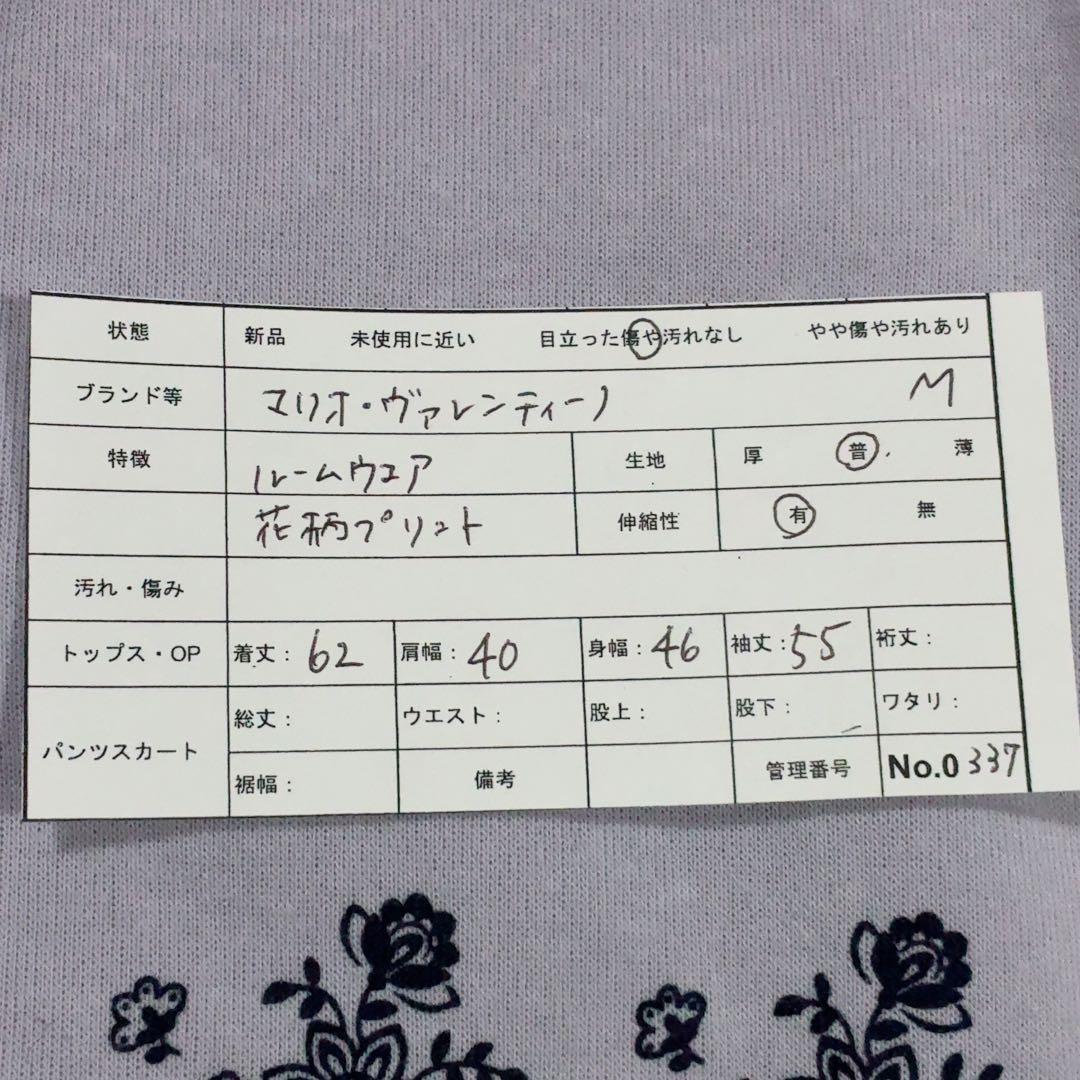 状態 新品 未使用に近い 目立った傷や汚れなし やや傷や汚れあり
ブランド等 マリオ・ヴァレンティーノ M
特徴 ルームウェア 生地 厚 普 薄
花柄プリント 伸縮性 有 無
汚れ・傷み
トップス・OP 着丈：62 肩幅：40 身幅：46 袖丈：55 裄丈：
パンツスカート 総丈： ウエスト： 股上： 股下： ワタリ：
裾幅： 備考 管理番号 No.0337